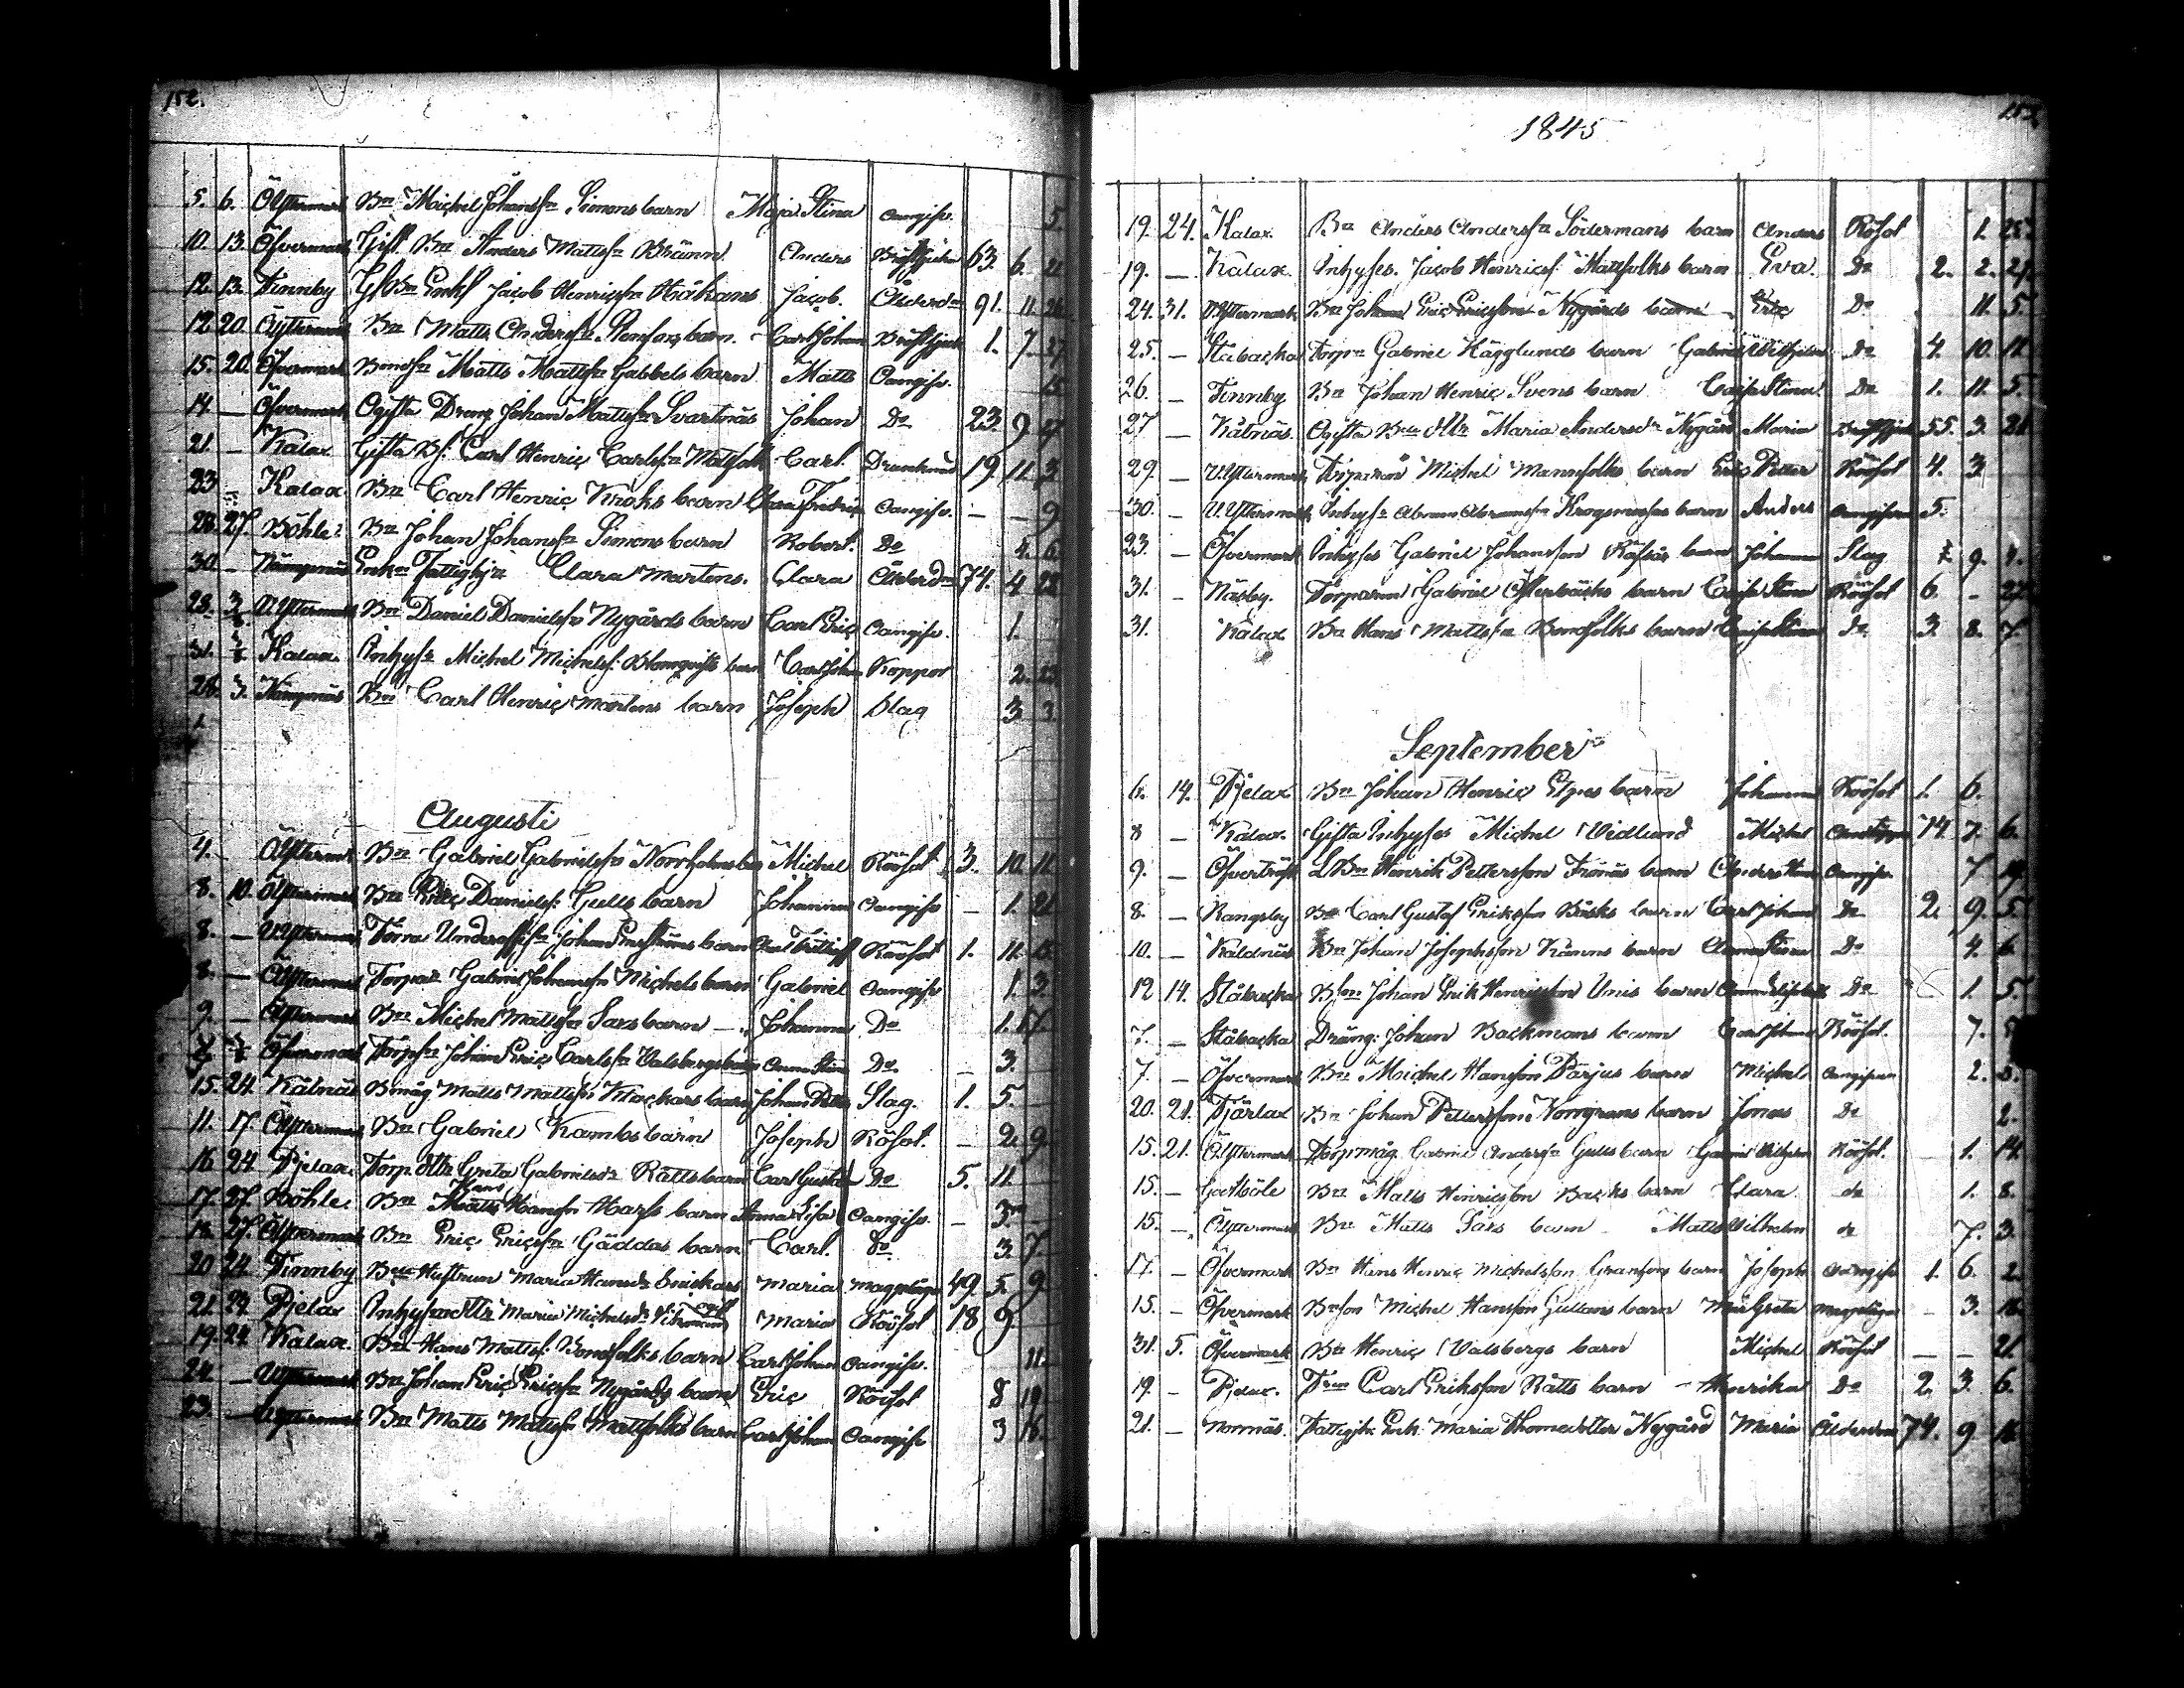 152.
5. 6. Bn Michel Johanss Simons barn Maja Stina oangifv. 5.
10. 13. Öfvermark Gift Bn Anders Mattss Bränn Anders 63. 6. 21
12. 13. Finnby Jacob Henricss Håkans Jacob. Ålderd 91. 11. 26
12 20. Bn Matts Anderss barn. Carl Johan 1. 7. 27
15. 20. Öfvermark Matts Mattss Gabbels barn Matts Oangifv. 15
14. — Öfvermark Ogifta Dräng Johan Mattss Svartnäs Johan Do 23. 9 27
21. — Kalax Gifta Carl Henric Carlss Mattfolk Carl. Drunknad 19. 11. 3
23 Kalax Bn Carl Henric Kroks barn oangifv. — — 9
27. Böhle Bn Johan Johanss Simons barn Robert. Do 4. 6
30. — Nämpnäs Clara Martens. Clara Ålderd 74. 4 28
28. Bn Daniel Danielss Nygårds barn Carl Eric oangifv. 1.
31. Kalax. Inhys Michel Michelss Blomqvists barn Carl Johan Koppor 2. 23
28. 3. Nämpnäs Bn Carl Henric Martens barn Joseph Slag 3. 3.
1.
Augusti
4. — Bn Gabriel Gabrielss Norrholms Michel Rödsot 3. 10. 11
8. 10. Bn Eric Danielss Gulls barn Johanna Oangifv — 1. 21
8. — Johan barn Rödsot 1. 11. 15.
8. — Gabriel Johanss Michels barn Gabriel oangifv 1. 3.
9. — Bn Michel Mattss Lars barn — Johanna Do 1. 17.
Öfvermark Johan Eric Carlss Valsbergs barn Anna Stina Do. — 3.
15. 24. Kålnäs Bmåg Matts Mattss Klockars barn Johan Petter Slag. 1. 5. —
11. 17. Bn Gabriel Kambs barn Joseph Rödsot. — 2. 9.
16 24. Pjelax. Torp dttr Greta Gabrielsdr Rätts barn Carl Gustaf Do 5. 11.
17. 27. Böhle. Bn Hans Hansson barn Anna Lisa Oangifv. — 3. —
18. 27. Bn Eric Ericss Gäddas barn Carl. Do 3. 7.
20 24. Finnby Hustrun Maria Hansdr Snickars Maria magplåga 49. 5. 9.
21. 24. Pjelax Maria Michelsdr Maria Rödsot 18 9.
19. 24 Kalax. Bn Hans Mattss Bondfolks barn Carl Johan oangifv. 11
24. — Bn Johan Eric Ericss Nygårds barn Eric Rödsot 8 19
23. — Bn Matts Mattss Mattfolks barn Carl Johan oangifv 3 16.
1845
19. 24. Kalax. Bn Anders Anderss Södermans barn Anders Rödsot 1. 25.
19. — Kalax. Inhyses. Jacob Henricss Mattfolks barn Eva. Do 2. 2. 21.
24. 31. Bn Johan Eric Ericsson Nygårds barn Eric Do 11. 5.
25. — Ståbacka Gabriel Hägglunds barn Gabriel Wilhelm Do 4. 10. 11
26. — Finnby Bn Johan Henric Svens barn Caisa Stina Do 1. 11. 5.
27 — Kålnäs. Ogifta dttr Maria Andersdr Nygård Maria 55. 3. 21.
29. — Torparen Michel Mannfolks barn Eric Petter Rödsot 4. 3.
30. — Inhyss Abram Abramss barn Anders oangifven 5.
23. — Öfvermark Inhyses Gabriel Johansson barn Johanna Slag 9. 4.
31. — Näsby. Torparen Gabriel Österbäcks barn Caisa Stina Rödsot 6. — 22
31. Kalax Bn Hans Mattss Bondfolks barn Caisa Stina Do 3. 8. 7.
September
6. 14. Pjelax Bn Johan Henric Elgs barn Johanna Rödsot 1. 6.
8 — Kalax. Gifta Inhyses Michel Widlund Michel 74 7. 6.
9. — Öfverträsk Bn Henrik Pettersson Frönäs barn Anders Oangifv. 7. 19.
8. — Rangsby Bn Carl Gustaf Eriksson Bäcks barn Carl Johan Do 2. 9. 5.
10. — Kaldnäs Bn Johan Josephsson Känns barn Anna Stina Do 4. 6
12 14. Ståbacka Johan Erik Henriksson Unis barn Anna Elisabeth Do 1. 5.
7. — Ståbacka Dräng. Johan Backmans barn Carl Johan Rödsot. 7. 5
7. — Öfvermark Bn Michel Hansson Parjus barn Michel oangifven 2.
20. 21. Tjärlax Bn Johan Pettersson Norrgrans barn Jonas Do 2.
15. 21. Torpmåg Gabriel Anderss Gulls barn Gabriel Wilhelm Rödsot. — 1. 14.
15. — Gottböle Bn Matts Henricsson Backs barn Clara. do 1. 8.
15. — Bn Matts Lars barn Matts Wilhelm do 7. 3.
17. — Öfvermark Bn Hans Henric Michelsson Granfors barn Joseph oangifv 1. 6. 2.
15. — Öfvermark Bnson Michel Hansson Gullans barn Maja Greta Magplågor — 3. 18.
31. 5. Öfvermark Bn Henric Valsbergs barn Michel Rödsot — — 21.
19. — Pjelax. Carl Eriksson Rätts barn — Henrika Do 2. 3. 6.
21. — Norrnäs. Fattighj. Enk. Maria Thomedotter Nygård Maria Ålderdom 74. 9 16.